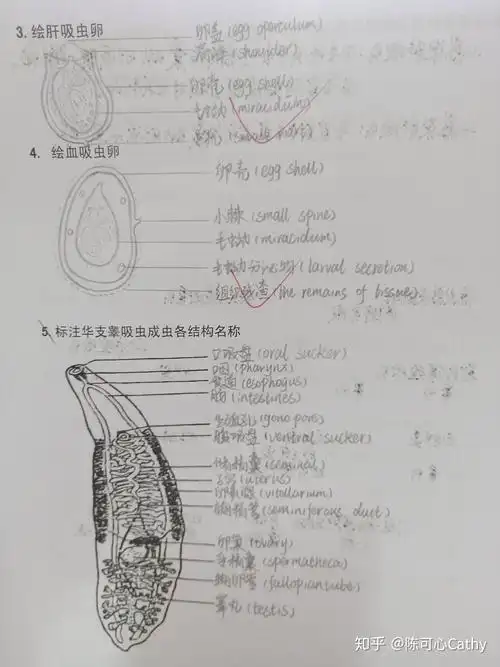 3.绘肝吸虫卵
卵盖 (egg operculum)
肩峰 (shoulder)
卵壳 (egg shell)
毛蚴 (miracidium)
4. 绘血吸虫卵
卵壳 (egg shell)
小棘 (small spine)
毛蚴 (miracidum)
毛蚴分泌物 (larval secretion)
组织残渣 (the remains of tissues)
5.标注华支睾吸虫成虫各结构名称
口吸盘 (oral sucker)
咽 (pharynx)
食道 (esophogus)
肠 (intestines)
生殖孔 (gono pore)
腹吸盘 (ventral sucker)
(seminal)
子宫 (uterus)
卵黄腺 (vitellarium)
输精管 (seminiferous duct)
卵巢 (ovary)
受精囊 (spermatheca)
输卵管 (fallopian tube)
睾丸 (testis)
知乎 @陈可心Cathy